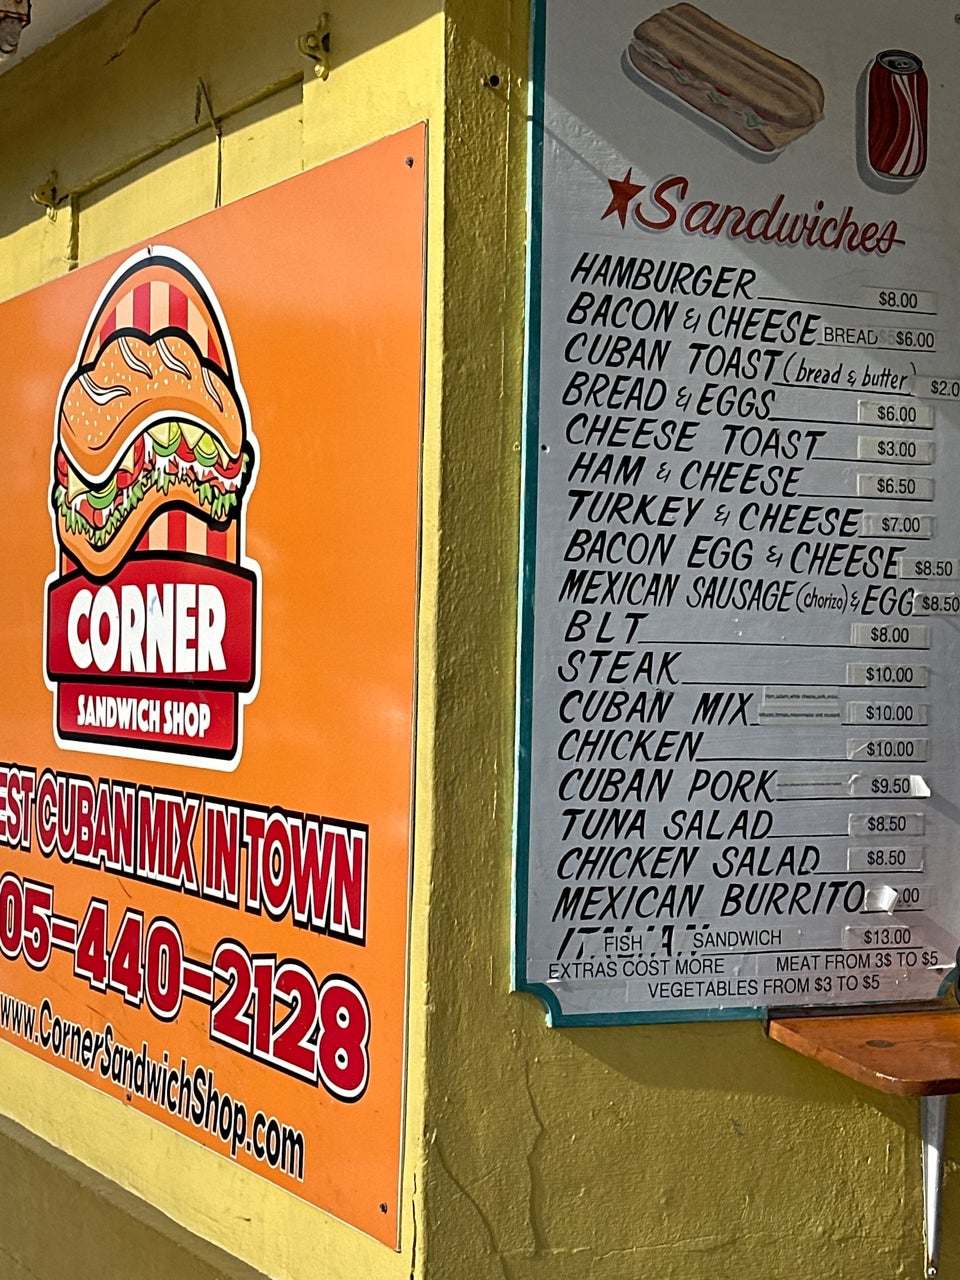 CORNER
SANDWICH SHOP
EST CUBAN MIX IN TOWN
05-440-2128
www.CornerSandwichShop.com
Sandwiches
HAMBURGER $8.00
BACON & CHEESE BREAD $6.00
CUBAN TOAST (bread & butter) $2.0
BREAD & EGGS $6.00
CHEESE TOAST $3.00
HAM & CHEESE $6.50
TURKEY & CHEESE $7.00
BACON EGG & CHEESE $8.50
MEXICAN SAUSAGE (chorizo) & EGG $8.50
BLT $8.00
STEAK $10.00
CUBAN MIX $10.00
CHICKEN $10.00
CUBAN PORK $9.50
TUNA SALAD $8.50
CHICKEN SALAD $8.50
MEXICAN BURRITO .00
FISH SANDWICH $13.00
EXTRAS COST MORE MEAT FROM 3$ TO $5
VEGETABLES FROM $3 TO $5